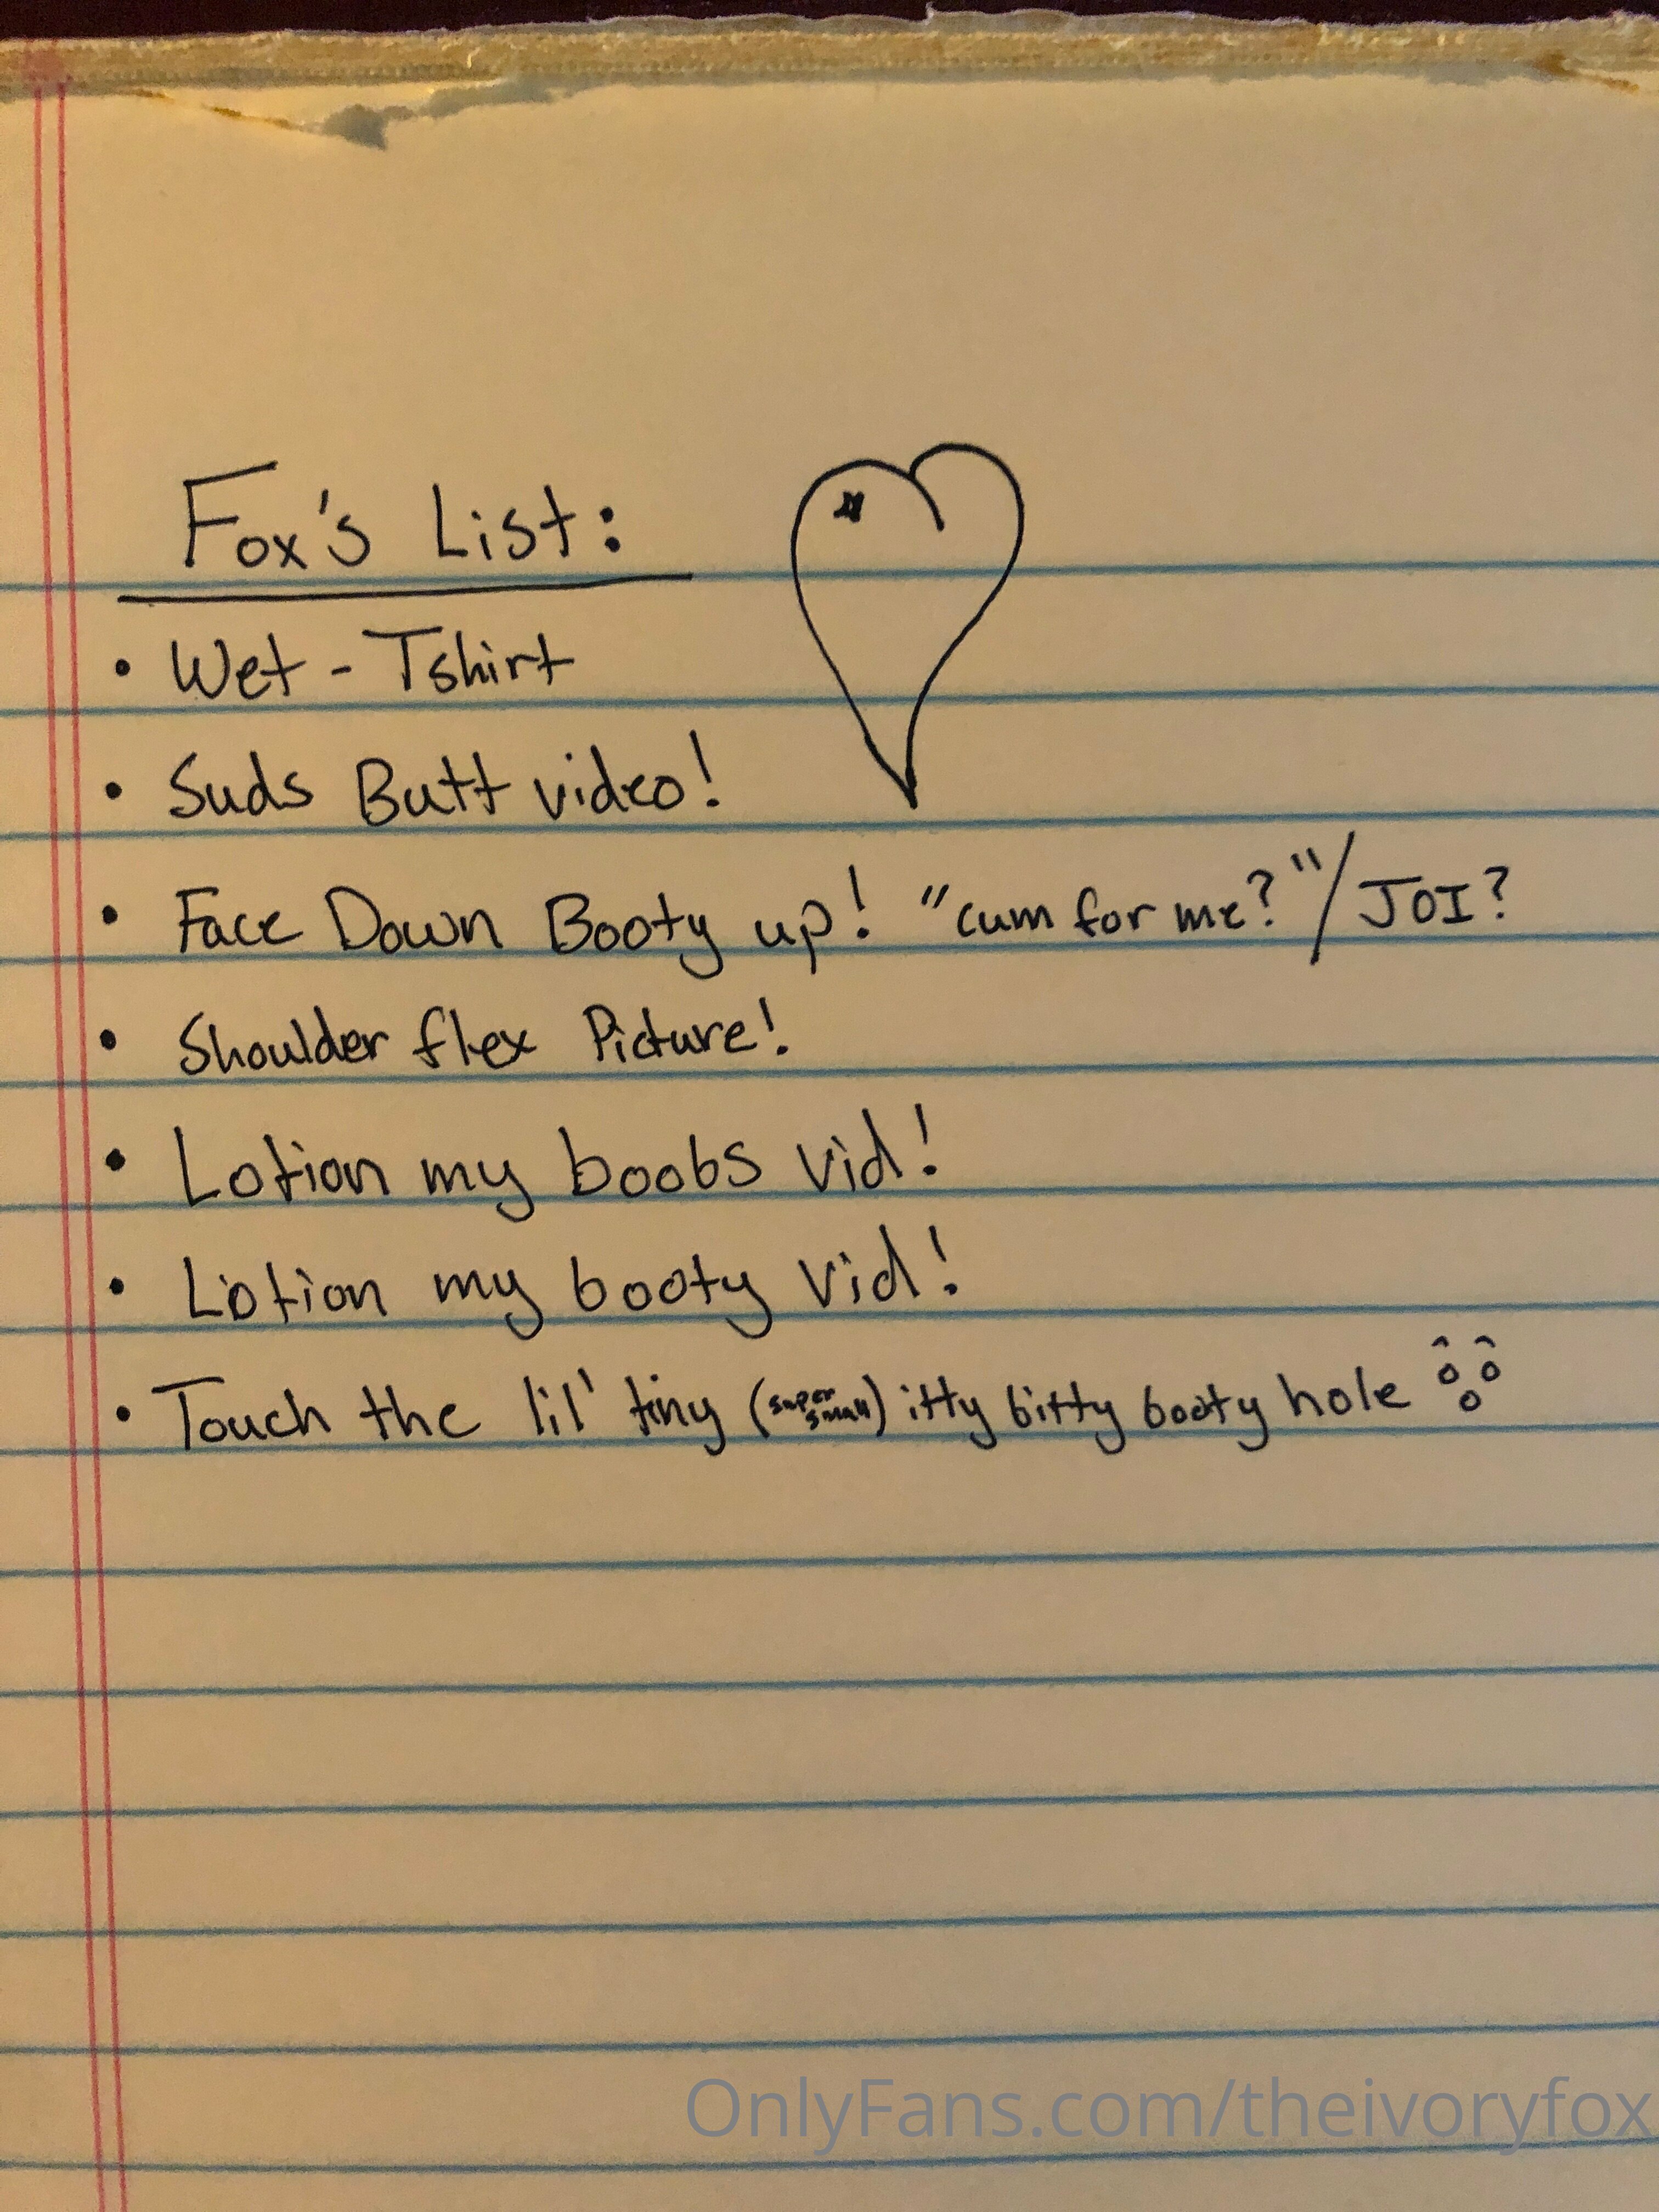 Fox's List:
• Wet - Tshirt
• Suds Butt video!
• Face Down Booty up! "cum for me?"/JOI?
• Shoulder flex Picture!
• Lotion my boobs vid!
• Lotion my booty vid!
• Touch the lil' tiny (super small) itty bitty booty hole
OnlyFans.com/theivoryfox